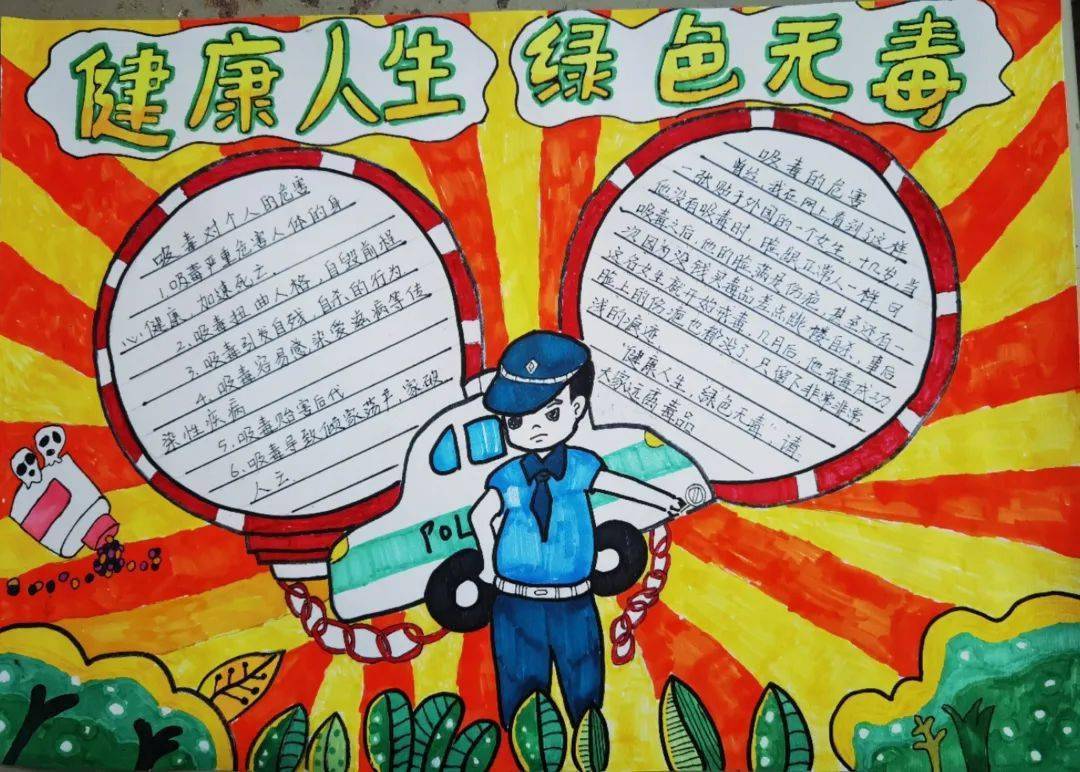 健康人生 绿色无毒
吸毒对个人的危害
1.吸毒严重危害人体的身
心健康,加速死亡.
2.吸毒扭曲人格,自毁前程
3.吸毒引发自残,自杀的行为
4.吸毒容易感染爱滋病等传
染性疾病
5.吸毒贻害后代
6.吸毒导致倾家荡产,家破
人亡.
吸毒的危害
曾经,我在网上看到了这样
一张贴子外国的一个女生,十几岁,当
他没有吸毒时,脸想正常人一样.可
吸毒之后,他的脸满是伤疤,甚至还有一
次因为没钱买毒品差点跳楼自杀.事后
这名女生就开始戒毒,几月后,他戒毒成功
脸上的伤疤也都没了,只留下非常非常
浅的痕迹.
“健康人生,绿色无毒”,请
大家远离毒品。
POL